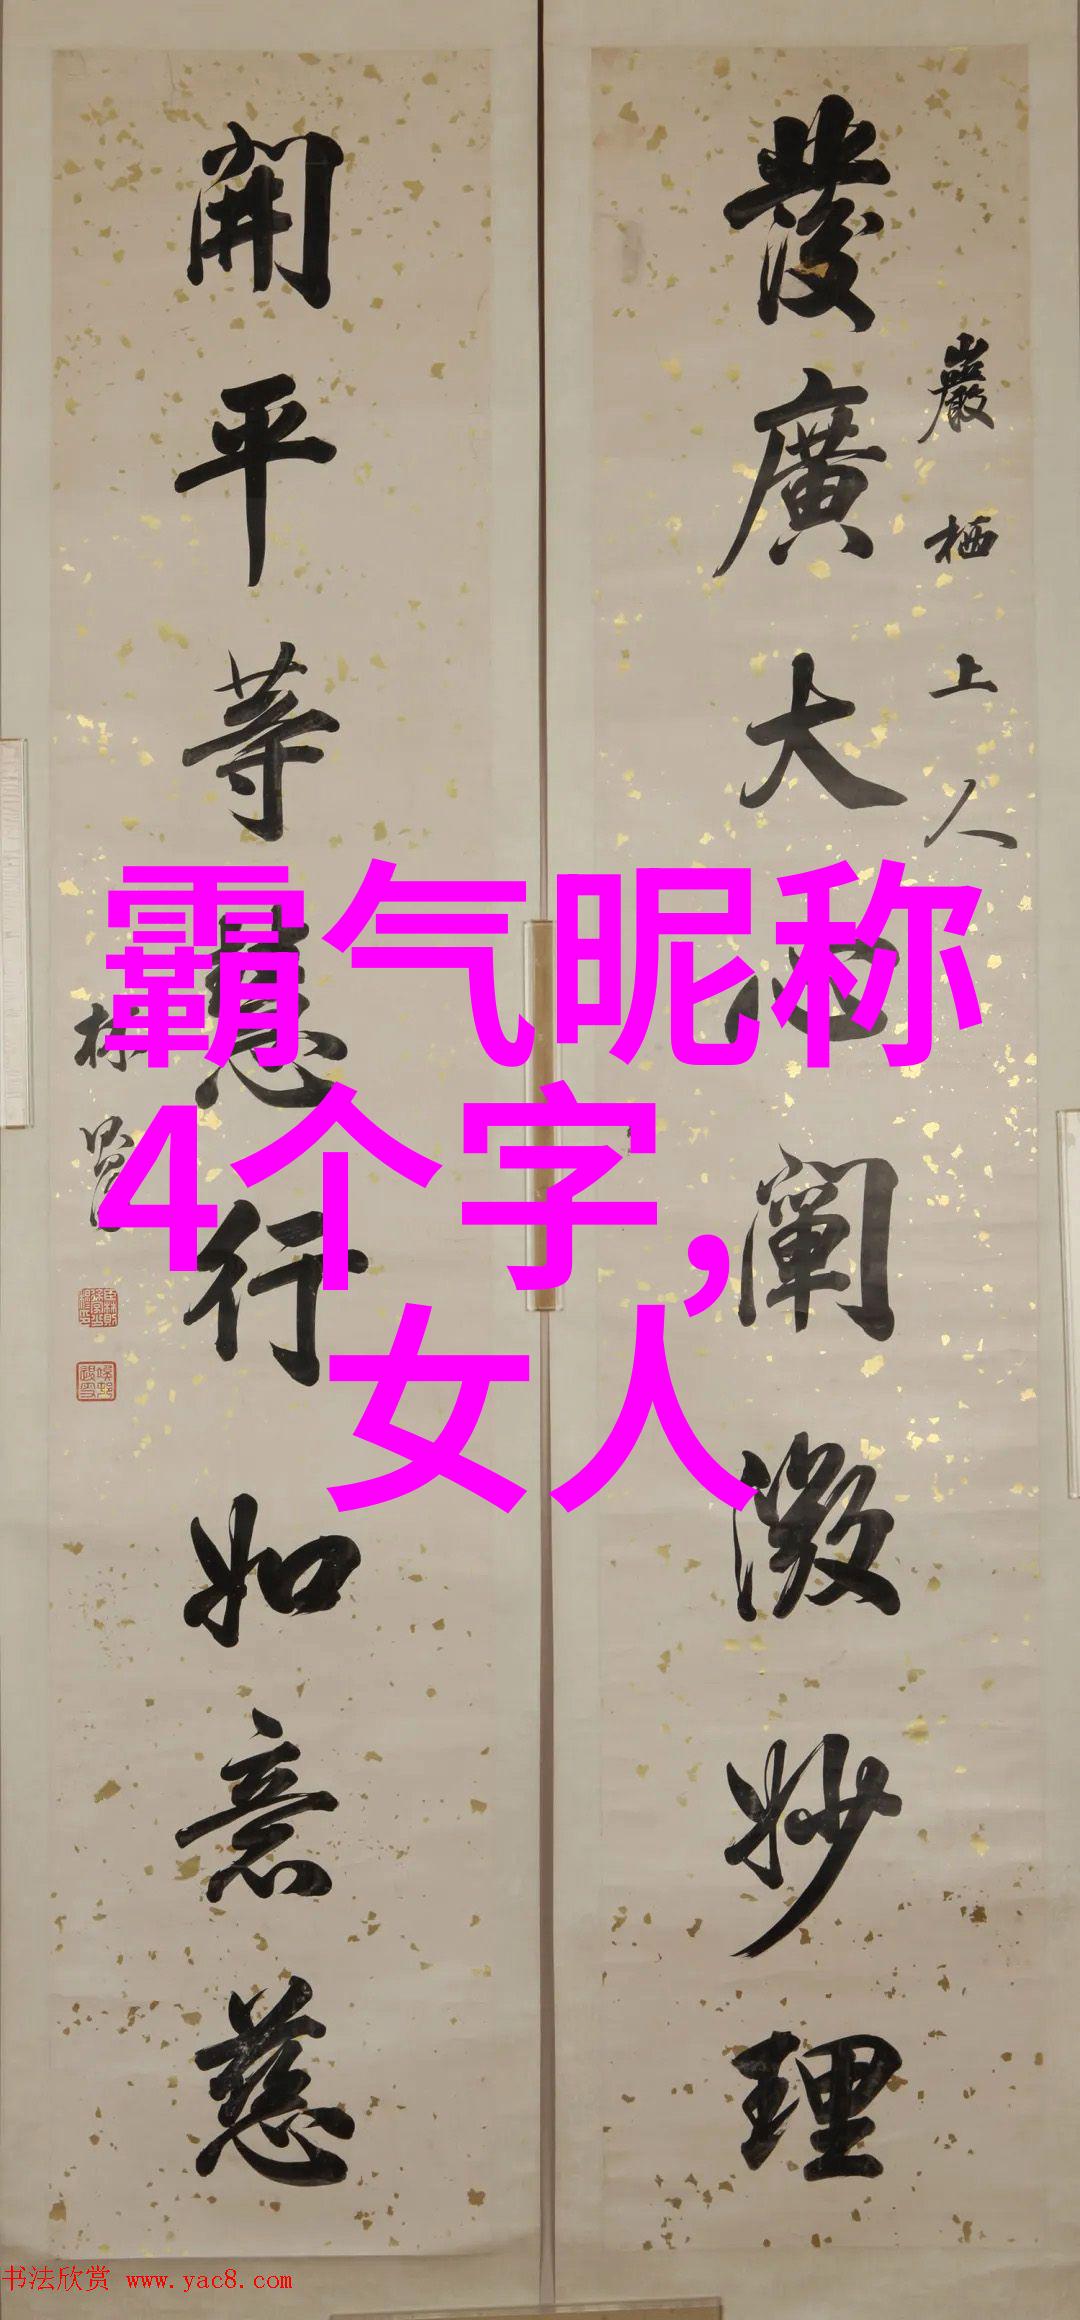 巖栖上人
發廣大心闡微妙理
開平等慧行如意慈
林
霸气昵称
4个字，
女人
书法欣赏 www.yac8.com